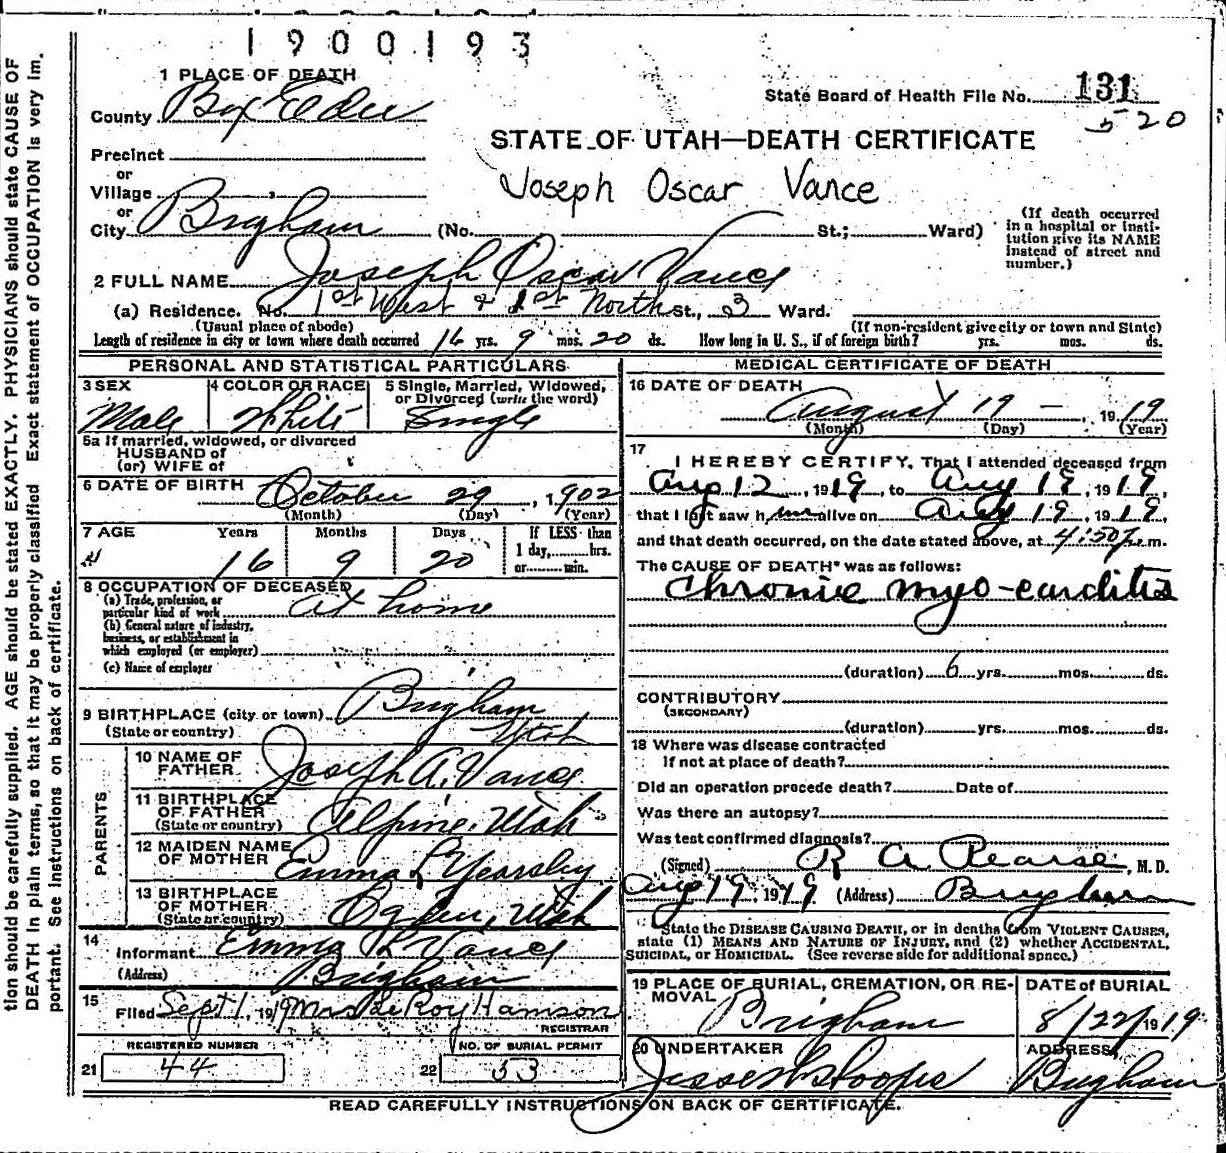 1900193
1 PLACE OF DEATH
County Box Elder
State Board of Health File No. 131
520
STATE OF UTAH—DEATH CERTIFICATE
Precinct
or
Village
Joseph Oscar Vance
or
City Brigham (No. St.; Ward)
(If death occurred
in a hospital or insti-
tution give its NAME
instead of street and
number.)
2 FULL NAME Joseph Oscar Vance
(a) Residence. No. 1st West & 1st North St., 3 Ward.
(Usual place of abode) (If non-resident give city or town and State)
Length of residence in city or town where death occurred 16 yrs. 9 mos. 20 ds. How long in U. S., if of foreign birth? yrs. mos. ds.
PERSONAL AND STATISTICAL PARTICULARS
3 SEX 4 COLOR OR RACE 5 Single, Married, Widowed,
or Divorced (write the word)
Male White Single
5a If married, widowed, or divorced
HUSBAND of
(or) WIFE of
6 DATE OF BIRTH October 29, 1902
(Month) (Day) (Year)
7 AGE Years Months Days If LESS than
1 day, hrs.
or min.
16 9 20
8 OCCUPATION OF DECEASED
(a) Trade, profession, or
particular kind of work At home
(b) General nature of industry,
business, or establishment in
which employed (or employer)
(c) Name of employer
9 BIRTHPLACE (city or town) Brigham
(State or country) Utah
PARENTS
10 NAME OF
FATHER Joseph A. Vance
11 BIRTHPLACE
OF FATHER
(State or country) Alpine, Utah
12 MAIDEN NAME
OF MOTHER Emma L Yearsley
13 BIRTHPLACE
OF MOTHER
(State or country) Ogden, Utah
14
Informant Emma L Vance
(Address) Brigham
15
Filed Sept 1, 1919 Mrs LeRoy Hamson
REGISTRAR
REGISTERED NUMBER NO. OF BURIAL PERMIT
21 44 22 53
MEDICAL CERTIFICATE OF DEATH
16 DATE OF DEATH
August 19 —, 1919
(Month) (Day) (Year)
17
I HEREBY CERTIFY, That I attended deceased from
Aug 12, 1919, to Aug 19, 1919,
that I last saw him alive on Aug 19, 1919,
and that death occurred, on the date stated above, at 4:50 P. m.
The CAUSE OF DEATH* was as follows:
Chronic myo-carditis
(duration) 6 yrs. mos. ds.
CONTRIBUTORY
(SECONDARY)
(duration) yrs. mos. ds.
18 Where was disease contracted
If not at place of death?
Did an operation procede death? Date of
Was there an autopsy?
Was test confirmed diagnosis?
(Signed) R A Pearse, M. D.
Aug 19, 1919 (Address) Brigham
*State the DISEASE CAUSING DEATH, or in deaths from VIOLENT CAUSES,
state (1) MEANS AND NATURE OF INJURY, and (2) whether ACCIDENTAL,
SUICIDAL, or HOMICIDAL. (See reverse side for additional space.)
19 PLACE OF BURIAL, CREMATION, OR RE-
MOVAL Brigham
DATE of BURIAL
8/22/1919
20 UNDERTAKER
ADDRESS
Brigham
READ CAREFULLY INSTRUCTIONS ON BACK OF CERTIFICATE.
tion should be carefully supplied. AGE should be stated EXACTLY. PHYSICIANS should state CAUSE OF
DEATH in plain terms, so that it may be properly classified. Exact statement of OCCUPATION is very im-
portant. See instructions on back of certificate.